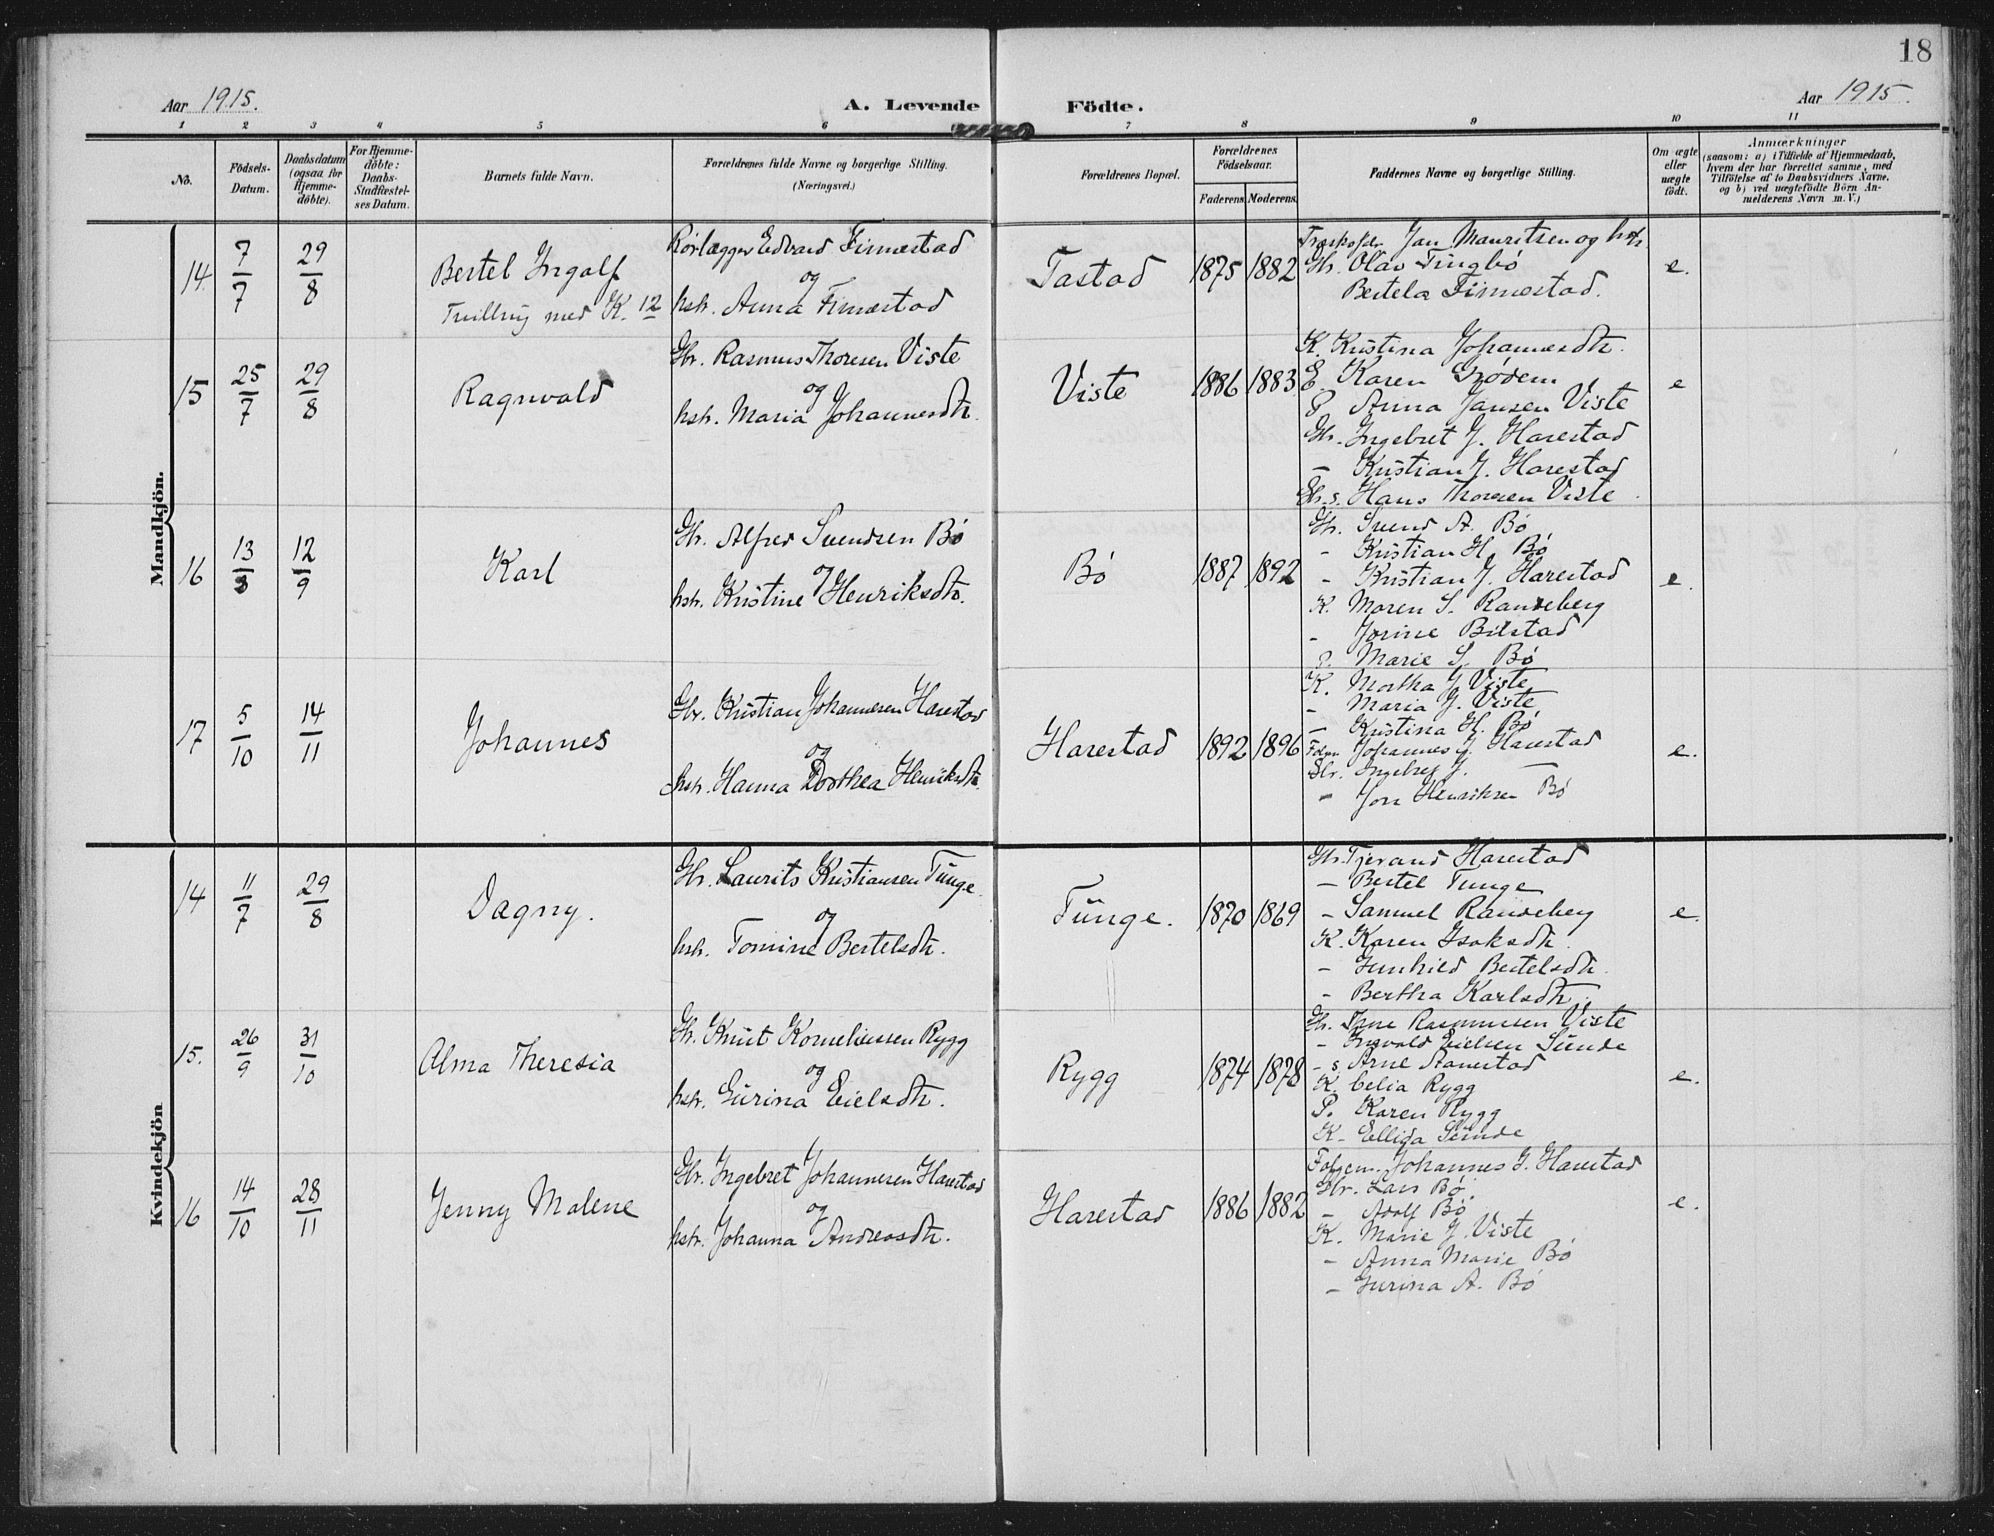 18
Aar 1915.
A. Levende Födte.
Aar 1915.
1 2 3 4 5 6 7 8 9 10 11
No.
Födsels-
Datum.
Daabsdatum
(ogsaa for
Hjemme-
döbte).
For Hjemme-
döbte:
Daabs-
Stadfæstel-
ses Datum.
Barnets fulde Navn.
Forældrenes fulde Navne og borgerlige Stilling.
(Næringsvei.)
Forældrenes Bopæl.
Forældrenes
Födselsaar.
Faderens. Moderens.
Faddernes Navne og borgerlige Stilling.
Om ægte
eller
uægte
födt.
Anmærkninger
(saasom: a) i Tilfælde af Hjemmedaab,
hvem der har forrettet samme, med
Tilföielse af to Daabsvidners Navne.
og b) ved uægtefödte Börn An-
melderens Navn m. V.)
Mandkjön.
14. 7/7 29/8
Bertel Ingolf
Tvilling med K. 12
Rørlægger Edvard Finnestad
og
hstr. Anna Finnestad
Tastad 1875 1882
Jan Mauritsen og
Gbr. Olav Tingbø
Bertela Finnestad.
e.
15 25/7 29/8
Ragnvald
Gbr. Rasmus Thoresen Viste
og
hstr. Maria Johannesdtr.
Viste 1886 1883.
K. Kristina Johannesdtr.
E. Karen Grødem
P. Anna Jansen Viste
Gbr. Ingebret J. Harestad
– Kristian J. Harestad
Gbr.s. Hans Thoresen Viste
e
16 13/8 12/9
Karl
Gbr. Alfred Svendsen Bø
og
hstr. Kristine Henriksdtr.
Bø 1887 1892
Gbr. Svend A. Bø
- Kristian H. Bø
- Kristian J. Harestad
K. Maren S. Randeberg
- Jorine Bilstad
P. Marie S. Bø
e.
17 5/10 14/11
Johannes
Gbr. Kristian Johannesen Harestad
og
hstr. Hanna Dorthea Henriksdtr.
Harestad 1892 1896
K. Martha J. Viste
– Maria J. Viste
– Kristina H. Bø
Johannes J. Harestad
Gbr. Ingebret J. —
– Jon Henriksen Bø
e.
Kvindekjön
14 11/7 29/8
Dagny.
Gbr. Laurits Kristiansen Tunge
og
hstr. Tomine Bertelsdtr.
Tunge. 1870 1869
Gbr. Tjerand Harestad
– Bertel Tunge
– Samuel Randeberg
K. Karen Isaksdtr.
– Gunhild Bertelsdtr.
- Bertha Karlsdtr.
e.
15. 26/9 31/10
Alma Theresia
Gbr. Knut Korneliussen Rygg
og
hstr. Gurina Eielsdtr.
Rygg 1874 1878
Gbr. Tore Rasmussen Viste
- Ingvald Eielsen Sunde
- s. Arne Aanestad
K. Celia Rygg
P. Karen Rygg
K. Ellida Sunde
e.
16 14/10 28/11
Jenny Malene
Gbr. Ingebret Johannesen Harestad
og
hstr. Johanna Andreasdtr.
Harestad 1886 1882
Johannes J. Harestad
Gbr. Lars Bø.
– Adolf Bø
K. Marie J. Viste
– Anna Marie Bø
– Gurina A. Bø
e.